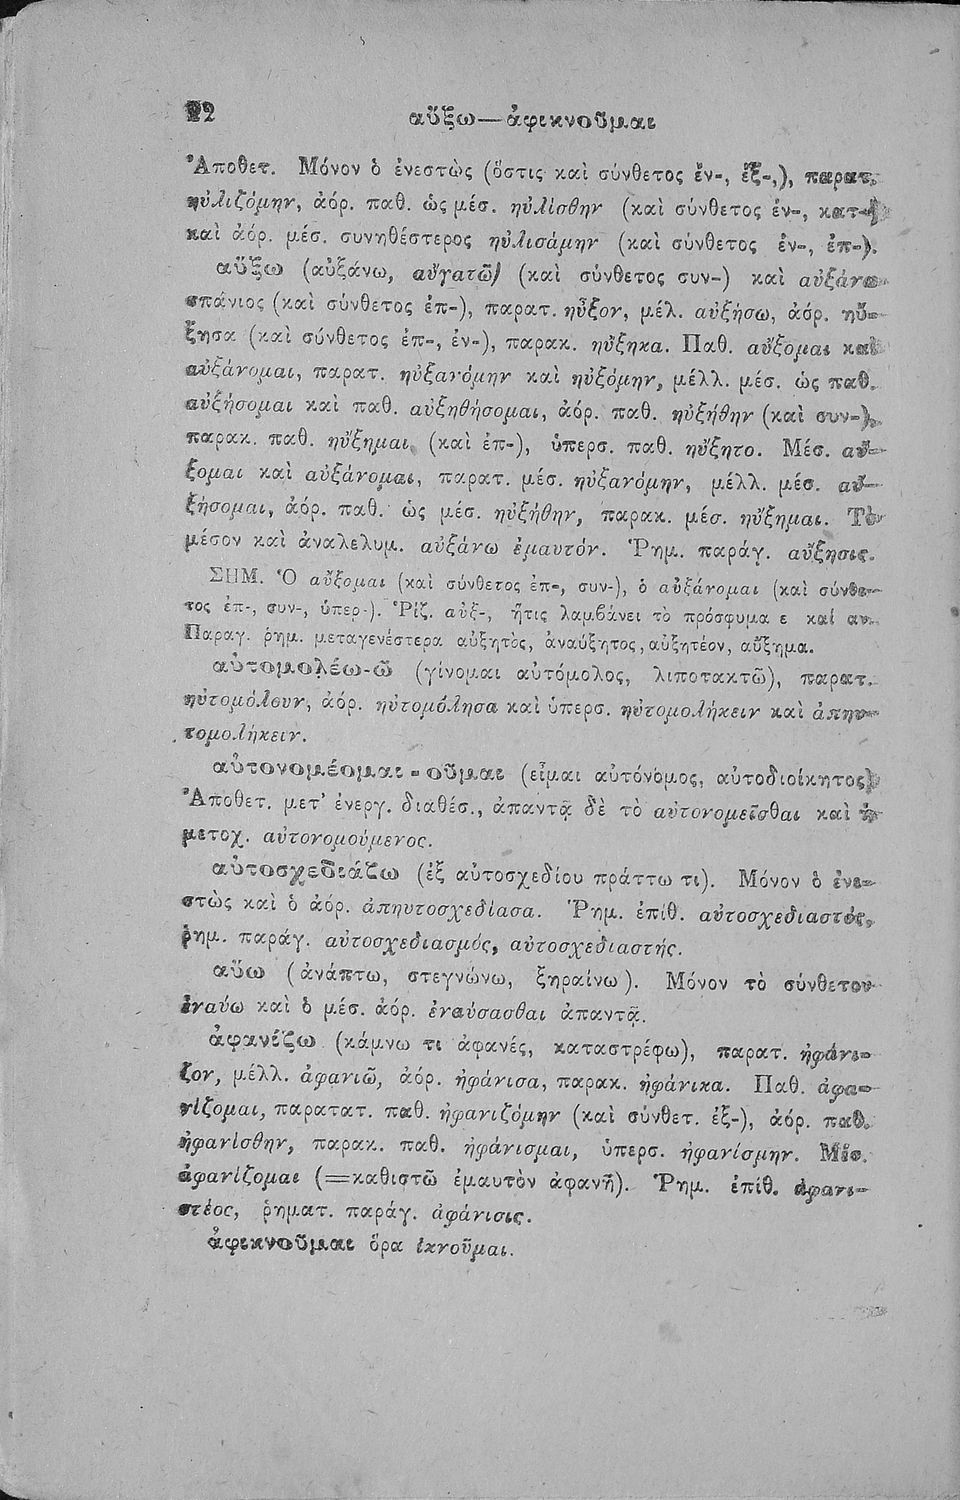 22 αὔξω—ἀφικνοῦμαι
Ἀποθετ. Μόνον ὁ ἐνεστὼς (ὅστις καὶ σύνθετος ἐν-, ἐξ-,), παρατ.
ηὐλιζόμην, ἀόρ. παθ. ὡς μέσ. ηὐλίσθην (καὶ σύνθετος ἐν-, κατ-)
καὶ ἀόρ. μέσ. συνηθέστερος ηὐλισάμην (καὶ σύνθετος ἐν-, ἐπ-).
αὔξω (αὐξάνω, αὐγατῶ) (καὶ σύνθετος συν-) καὶ αὐξάνω
σπάνιος (καὶ σύνθετος ἐπ-), παρατ. ηὖξον, μέλ. αὐξήσω, ἀόρ. ηὔ-
ξησα (καὶ σύνθετος ἐπ-, ἐν-), παρακ. ηὔξηκα. Παθ. αὔξομαι καὶ
αὐξάνομαι, παρατ. ηὐξανόμην καὶ ηὐξόμην, μέλλ. μέσ. ὡς παθ.
αὐξήσομαι καὶ παθ. αὐξηθήσομαι, ἀόρ. παθ. ηὐξήθην (καὶ συν-),
παρακ. παθ. ηὔξημαι (καὶ ἐπ-), ὑπερσ. παθ. ηὔξητο. Μέσ. αὔ-
ξομαι καὶ αὐξάνομαι, παρατ. μέσ. ηὐξανόμην, μέλλ. μέσ. αὐ-
ξήσομαι, ἀόρ. παθ. ὡς μέσ. ηὐξήθην, παρακ. μέσ. ηὔξημαι. Τὸ
μέσον καὶ ἀναλελυμ. αὐξάνω ἐμαυτόν. Ῥημ. παράγ. αὔξησις.
ΣΗΜ. Ὁ αὔξομαι (καὶ σύνθετος ἐπ-, συν-), ὁ αὐξάνομαι (καὶ σύνθε-
τος ἐπ-, συν-, ὑπερ-). Ῥίζ. αὐξ-, ἥτις λαμβάνει τὸ πρόσφυμα ε καί αν.
Παραγ. ῥημ. μεταγενέστερα αὐξητὸς, ἀναύξητος, αὐξητέον, αὔξημα.
αὐτομολέω-ῶ (γίνομαι αὐτόμολος, λιποτακτῶ), παρατ.
ηὐτομόλουν, ἀόρ. ηὐτομόλησα καὶ ὑπερσ. ηὐτομολήκειν καὶ ἀπηυ-
τομολήκειν.
αὐτονομέομαι-οῦμαι (εἶμαι αὐτόνομος, αὐτοδιοίκητος)
Ἀποθετ. μετ' ἐνεργ. διαθέσ., ἀπαντᾷ δὲ τὸ αὐτονομεῖσθαι καὶ ἡ
μετοχ. αὐτονομούμενος.
αὐτοσχεδιάζω (ἐξ αὐτοσχεδίου πράττω τι). Μόνον ὁ ἐνε-
στὼς καὶ ὁ ἀόρ. ἀπηυτοσχεδίασα. Ῥημ. ἐπίθ. αὐτοσχεδιαστός,
ῥημ. παράγ. αὐτοσχεδιασμός, αὐτοσχεδιαστής.
αὔω (ἀνάπτω, στεγνώνω, ξηραίνω). Μόνον τὸ σύνθετον
ἐναύω καὶ ὁ μέσ. ἀόρ. ἐναύσασθαι ἀπαντᾷ.
ἀφανίζω (κάμνω τι ἀφανές, καταστρέφω), παρατ. ἠφάνι-
ζον, μέλλ. ἀφανιῶ, ἀόρ. ἠφάνισα, παρακ. ἠφάνικα. Παθ. ἀφα-
νίζομαι, παρατατ. παθ. ἠφανιζόμην (καὶ σύνθετ. ἐξ-), ἀόρ. παθ.
ἠφανίσθην, παρακ. παθ. ἠφάνισμαι, ὑπερσ. ἠφανίσμην. Μέσ.
ἀφανίζομαι (=καθιστῶ ἐμαυτὸν ἀφανῆ). Ῥημ. ἐπίθ. ἀφανι-
στέος, ῥηματ. παράγ. ἀφάνισις.
ἀφικνοῦμαι ὅρα ἱκνοῦμαι.